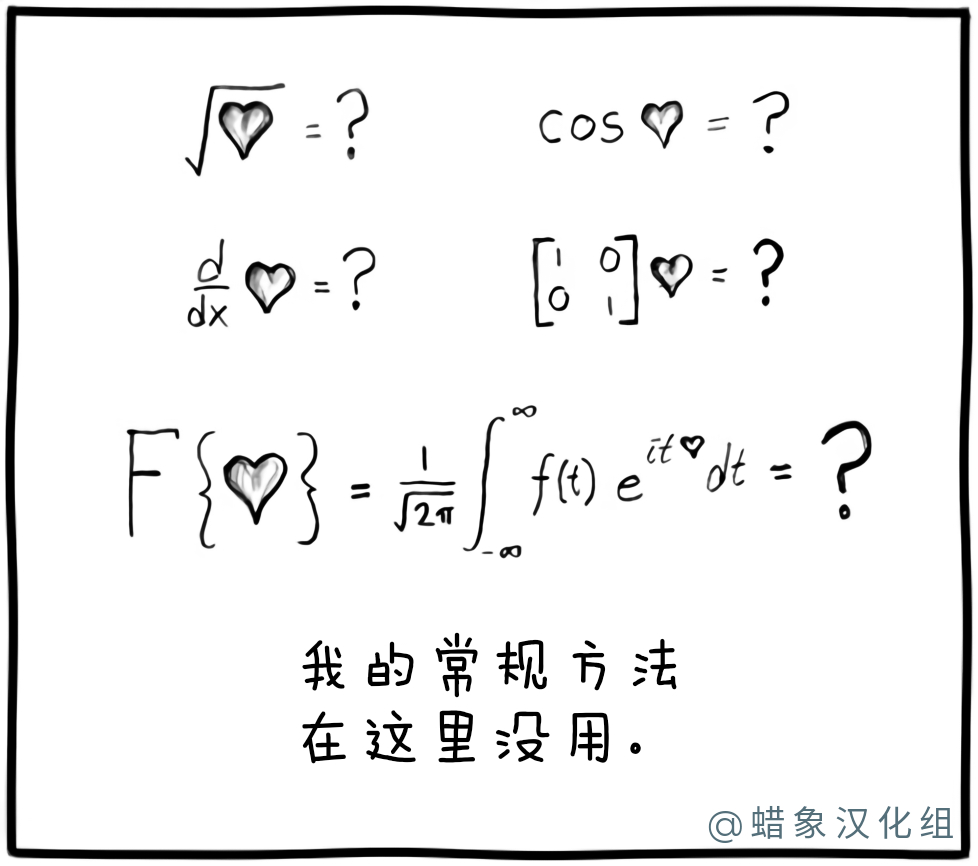 √♥ = ?
cos ♥ = ?
d/dx ♥ = ?
[1 0; 0 1] ♥ = ?
F{♥} = 1/√2π ∫_{-∞}^{∞} f(t) e^{it♥} dt = ?
我的常规方法
在这里没用。
@蜡象汉化组